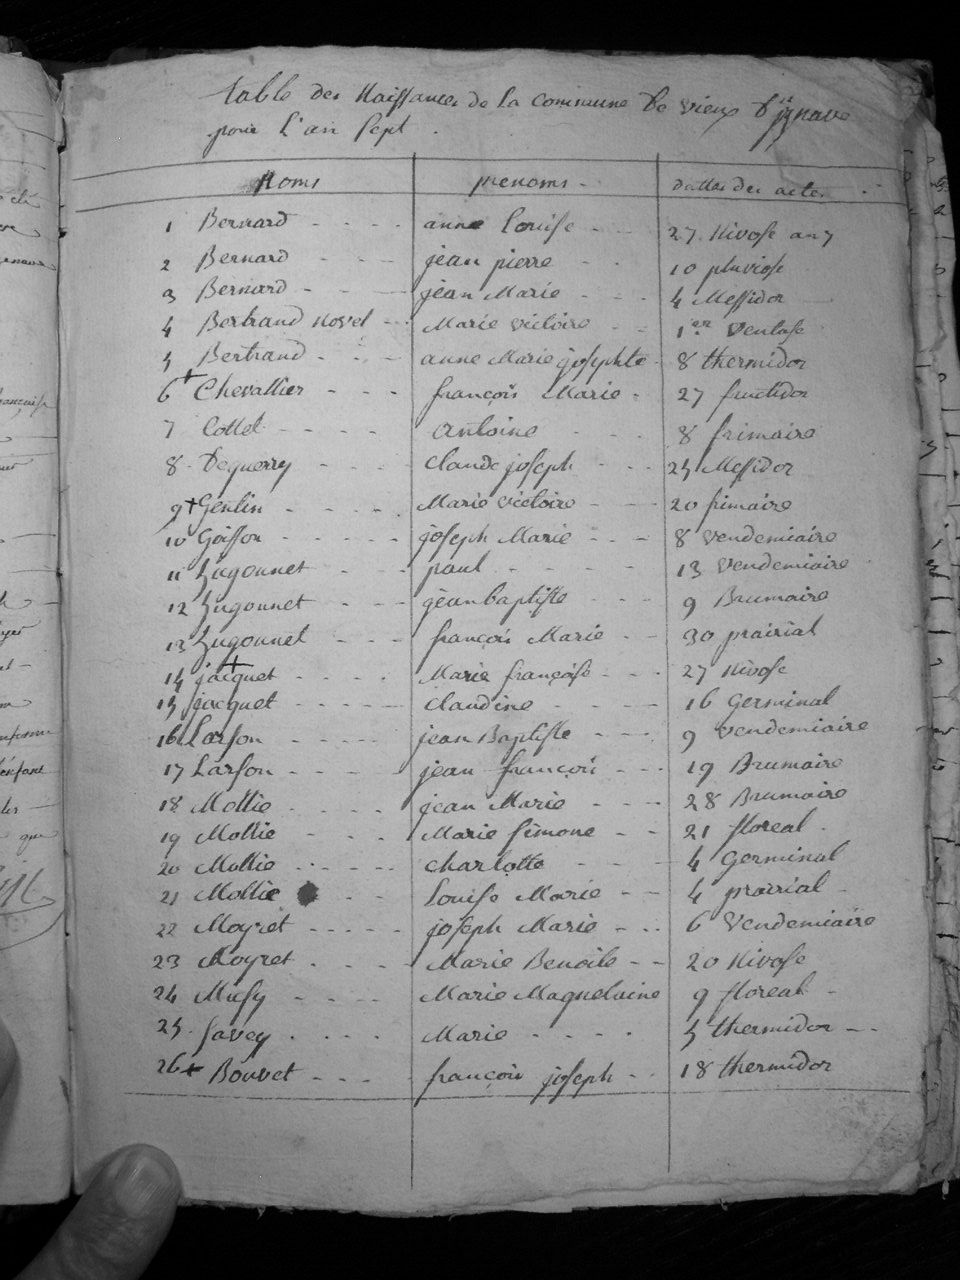 table des Naissances de la commune de vieux d'izenave
pour l'an sept
Noms prenoms dattes des actes
1 Bernard anne louise 27 Nivose an 7
2 Bernard jean pierre 10 pluviose
3 Bernard jean Marie 4 Messidor
4 Bertrand Novel Marie victoire 1er Ventose
5 Bertrand anne Marie josephte 8 thermidor
6 + Chevallier françois Marie 27 fructidor
7 Cottet antoine 8 frimaire
8 Deguerry claude joseph 25 Messidor
9 + Gentin Marie victoire 20 frimaire
10 Goiffon joseph Marie 8 Vendemiaire
11 hugonnet paul 13 Vendemiaire
12 hugonnet jean baptiste 9 Brumaire
13 hugonnet françois Marie 30 prairial
14 + jacquet Marie françoise 27 Nivose
15 jacquet claudine 16 Germinal
16 Larson jean Baptiste 9 Vendemiaire
17 Larson jean françois 19 Brumaire
18 Mollie jean Marie 28 Brumaire
19 Mollie Marie simone 21 floreal
20 Mollie charlotte 4 Germinal
21 Mollie louise Marie 4 prairial
22 Moyret joseph Marie 6 Vendemiaire
23 Moyret Marie Benoite 20 Nivose
24 Marie Magdelaine 9 floreal
25 savey Marie 5 thermidor
26 + Bouvet françois joseph 18 thermidor